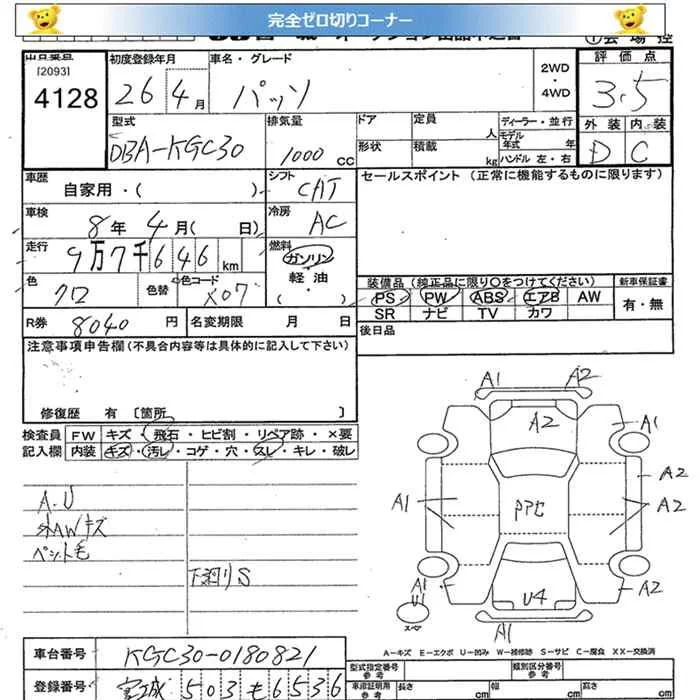 完全ゼロ切りコーナー
出品番号
[2093]
4128
初度登録年月
26年4月
車名・グレード
パッソ
2WD
・
4WD
評価点
3.5
外装 内装
D C
型式
DBA-KGC30
排気量
1000 cc
ドア
定員
人
形状
積載
kg
ディーラー・並行
モデル
年式 年
ハンドル 左・右
車歴
自家用・( )
シフト
CAT
セールスポイント(正常に機能するものに限ります)
車検
8年 4月( 日)
冷房
AC
走行
9万7千646km
燃料
ガソリン
軽・油
( )
色
クロ
色替
色コード
X07
装備品(純正品に限り○をつけてください)
PS PW ABS エアB AW
SR ナビ TV カワ
新車保証書
有・無
R券 8040円
名変期限 月 日
後日品
注意事項申告欄(不具合内容等は具体的に記入して下さい)
修復歴 有〔箇所 〕
検査員 FW キズ・飛石・ヒビ割・リペア跡・×要
記入欄 内装 キズ・汚レ・コゲ・穴・スレ・キレ・破レ
A.U
外AWキズ
ペット毛
下廻りS
A1 A2
A2 A1
A2
A1 PアセA2
A1
U1
スペア
U4 A2
A1
A-キズ E-エクボ U-凹み W-補修跡 S-サビ C-腐食 XX-交換済
車台番号 KGC30-0180821
登録番号 宮城 503 も 6536
型式指定番号
参考
類別区分番号
参考
車庫証明用
参考
長さ cm
幅 cm
高さ cm